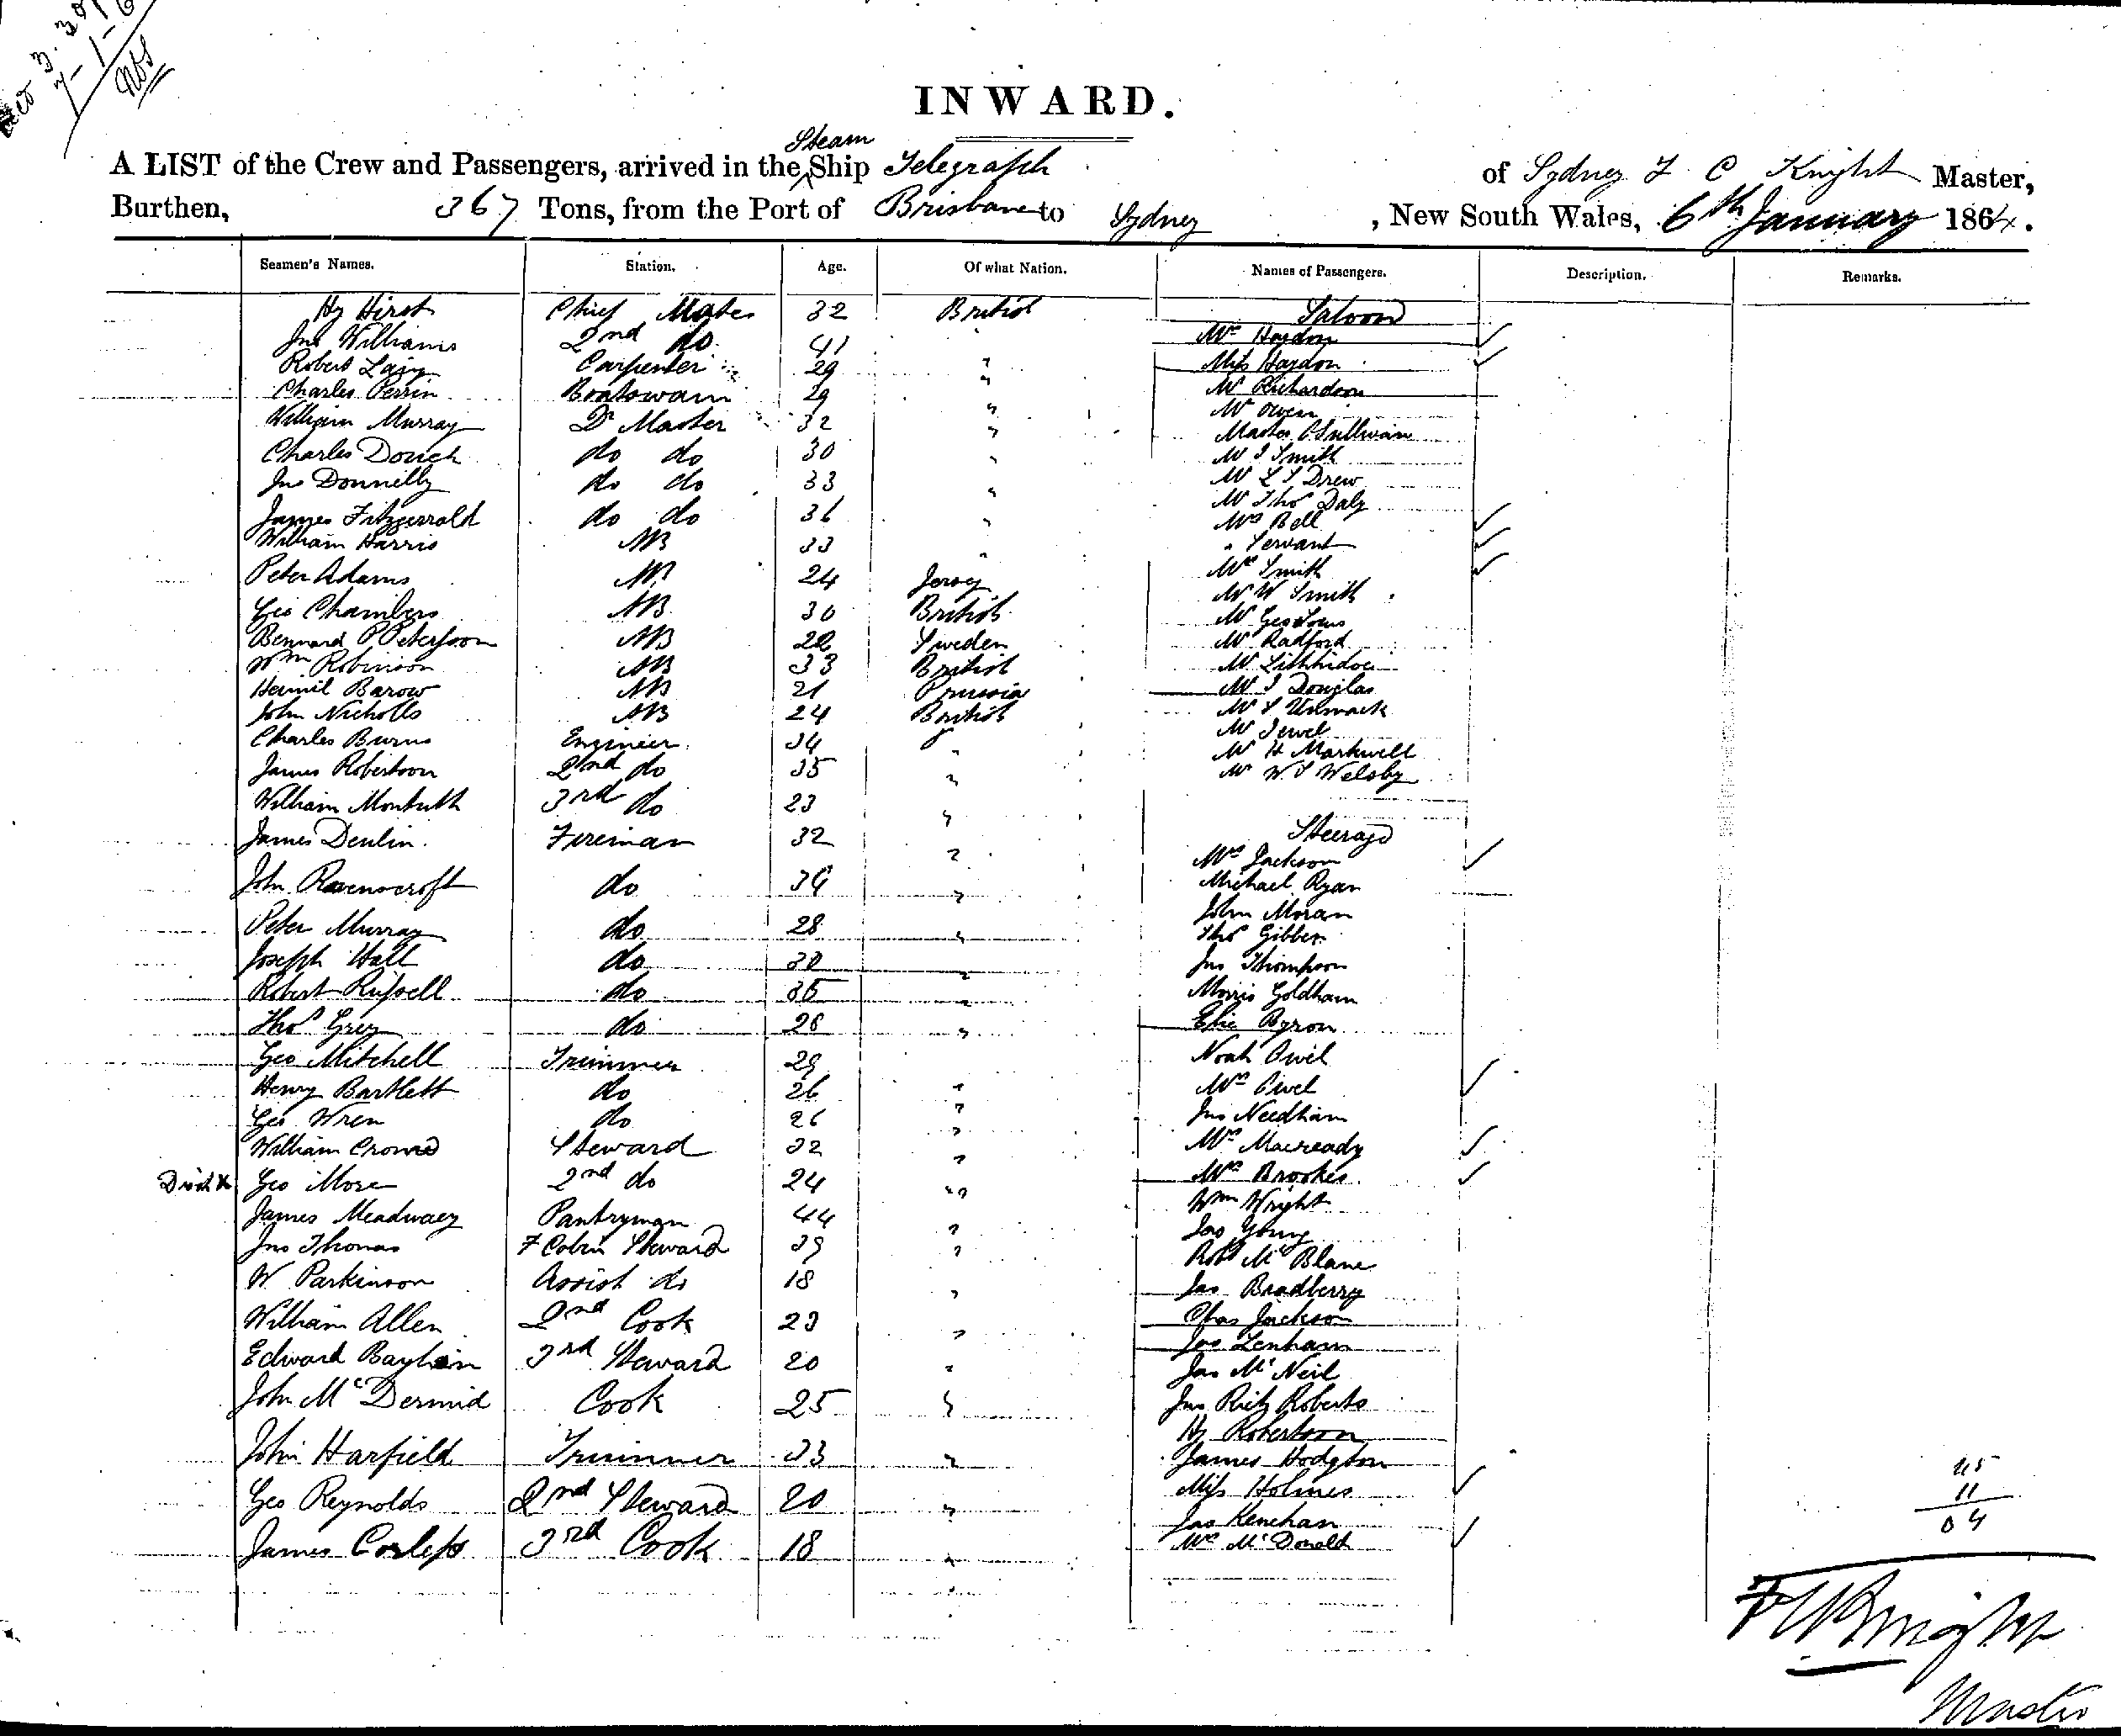 INWARD.
Steam
A LIST of the Crew and Passengers, arrived in the Ship Telegraph of Sydney F C Knight Master,
Burthen, 367 Tons, from the Port of Brisbane to Sydney , New South Wales, 6th January 1864.
Seamen's Names. Station. Age. Of what Nation. Names of Passengers. Description. Remarks.
Hy Hirst Chief Mate 32 British Saloon
Jno Williams 2nd do 41 " Mrs Haydon ✓
Robert Laing Carpenter 29 " Miss Haydon ✓
Charles Perrin Boatswain 29 " Mr Richardson
William Murray Qr Master 32 " Mr Owen
Charles Douch do do 30 " Master OSullivan
Jno Donnelly do do 33 " Mr J Smith
James Fitzgerrald do do 36 " Mr L S Drew
William Harris AB 33 " Mr Thos Daly
Peter Adams AB 24 Jersey Mrs Bell ✓
Geo Chambers AB 30 British " Servant ✓
Bernard P Peterson AB 22 Sweden Mrs Smith ✓
Wm Robinson AB 33 British Mr W Smith
Barow AB 21 Prussia Mr Geo
John Nicholls AB 24 British Mr Radford
Charles Burns Engineer 34 " Mr
James Robertson 2nd do 35 " Mr J Douglas
William Monteith 3rd do 23 " Mr
James Denlin Fireman 32 " Mr Jewel
John Ravenscroft do 34 " Mr H Markwell
Peter Murray do 28 " Mr W S Welsby
Joseph Hall do 30 " Steerage
Robert Russell do 35 " Mrs Jackson ✓
Thos Grey do 28 " Michael Ryan
Geo Mitchell Trimmer 29 John Moran
Henry Bartlett do 26 " Thos Gibben
Geo Wren do 26 " Jno Thompson
William Crowne Steward 32 " Morris Goldham
Geo More 2nd do 24 " Elie Byron
James Meadway Pantryman 44 " Noah Owel
Jno Thomas F Cabin Steward 39 " Mrs Owel ✓
W Parkinson Assist do 18 " Jno Needham
William Allen 2nd Cook 23 " Mrs Macready ✓
Edward 3rd Steward 20 " Mrs Brookes ✓
John McDermid Cook 25 " Wm Wright
John Harfield Trimmer 33 " Jas Young
Geo Reynolds 2nd Steward 20 " Robt McBlane
James Corless 3rd Cook 18 " Jas Bradberry
Chas Jackson
Jas Lenham
Jas McNeil
Jno Rich Roberts
Hy Robertson
James Hodgton
Miss Holmes ✓
Jas Kenehan
Mrs McDonald ✓
45
11
F C Knight
Master